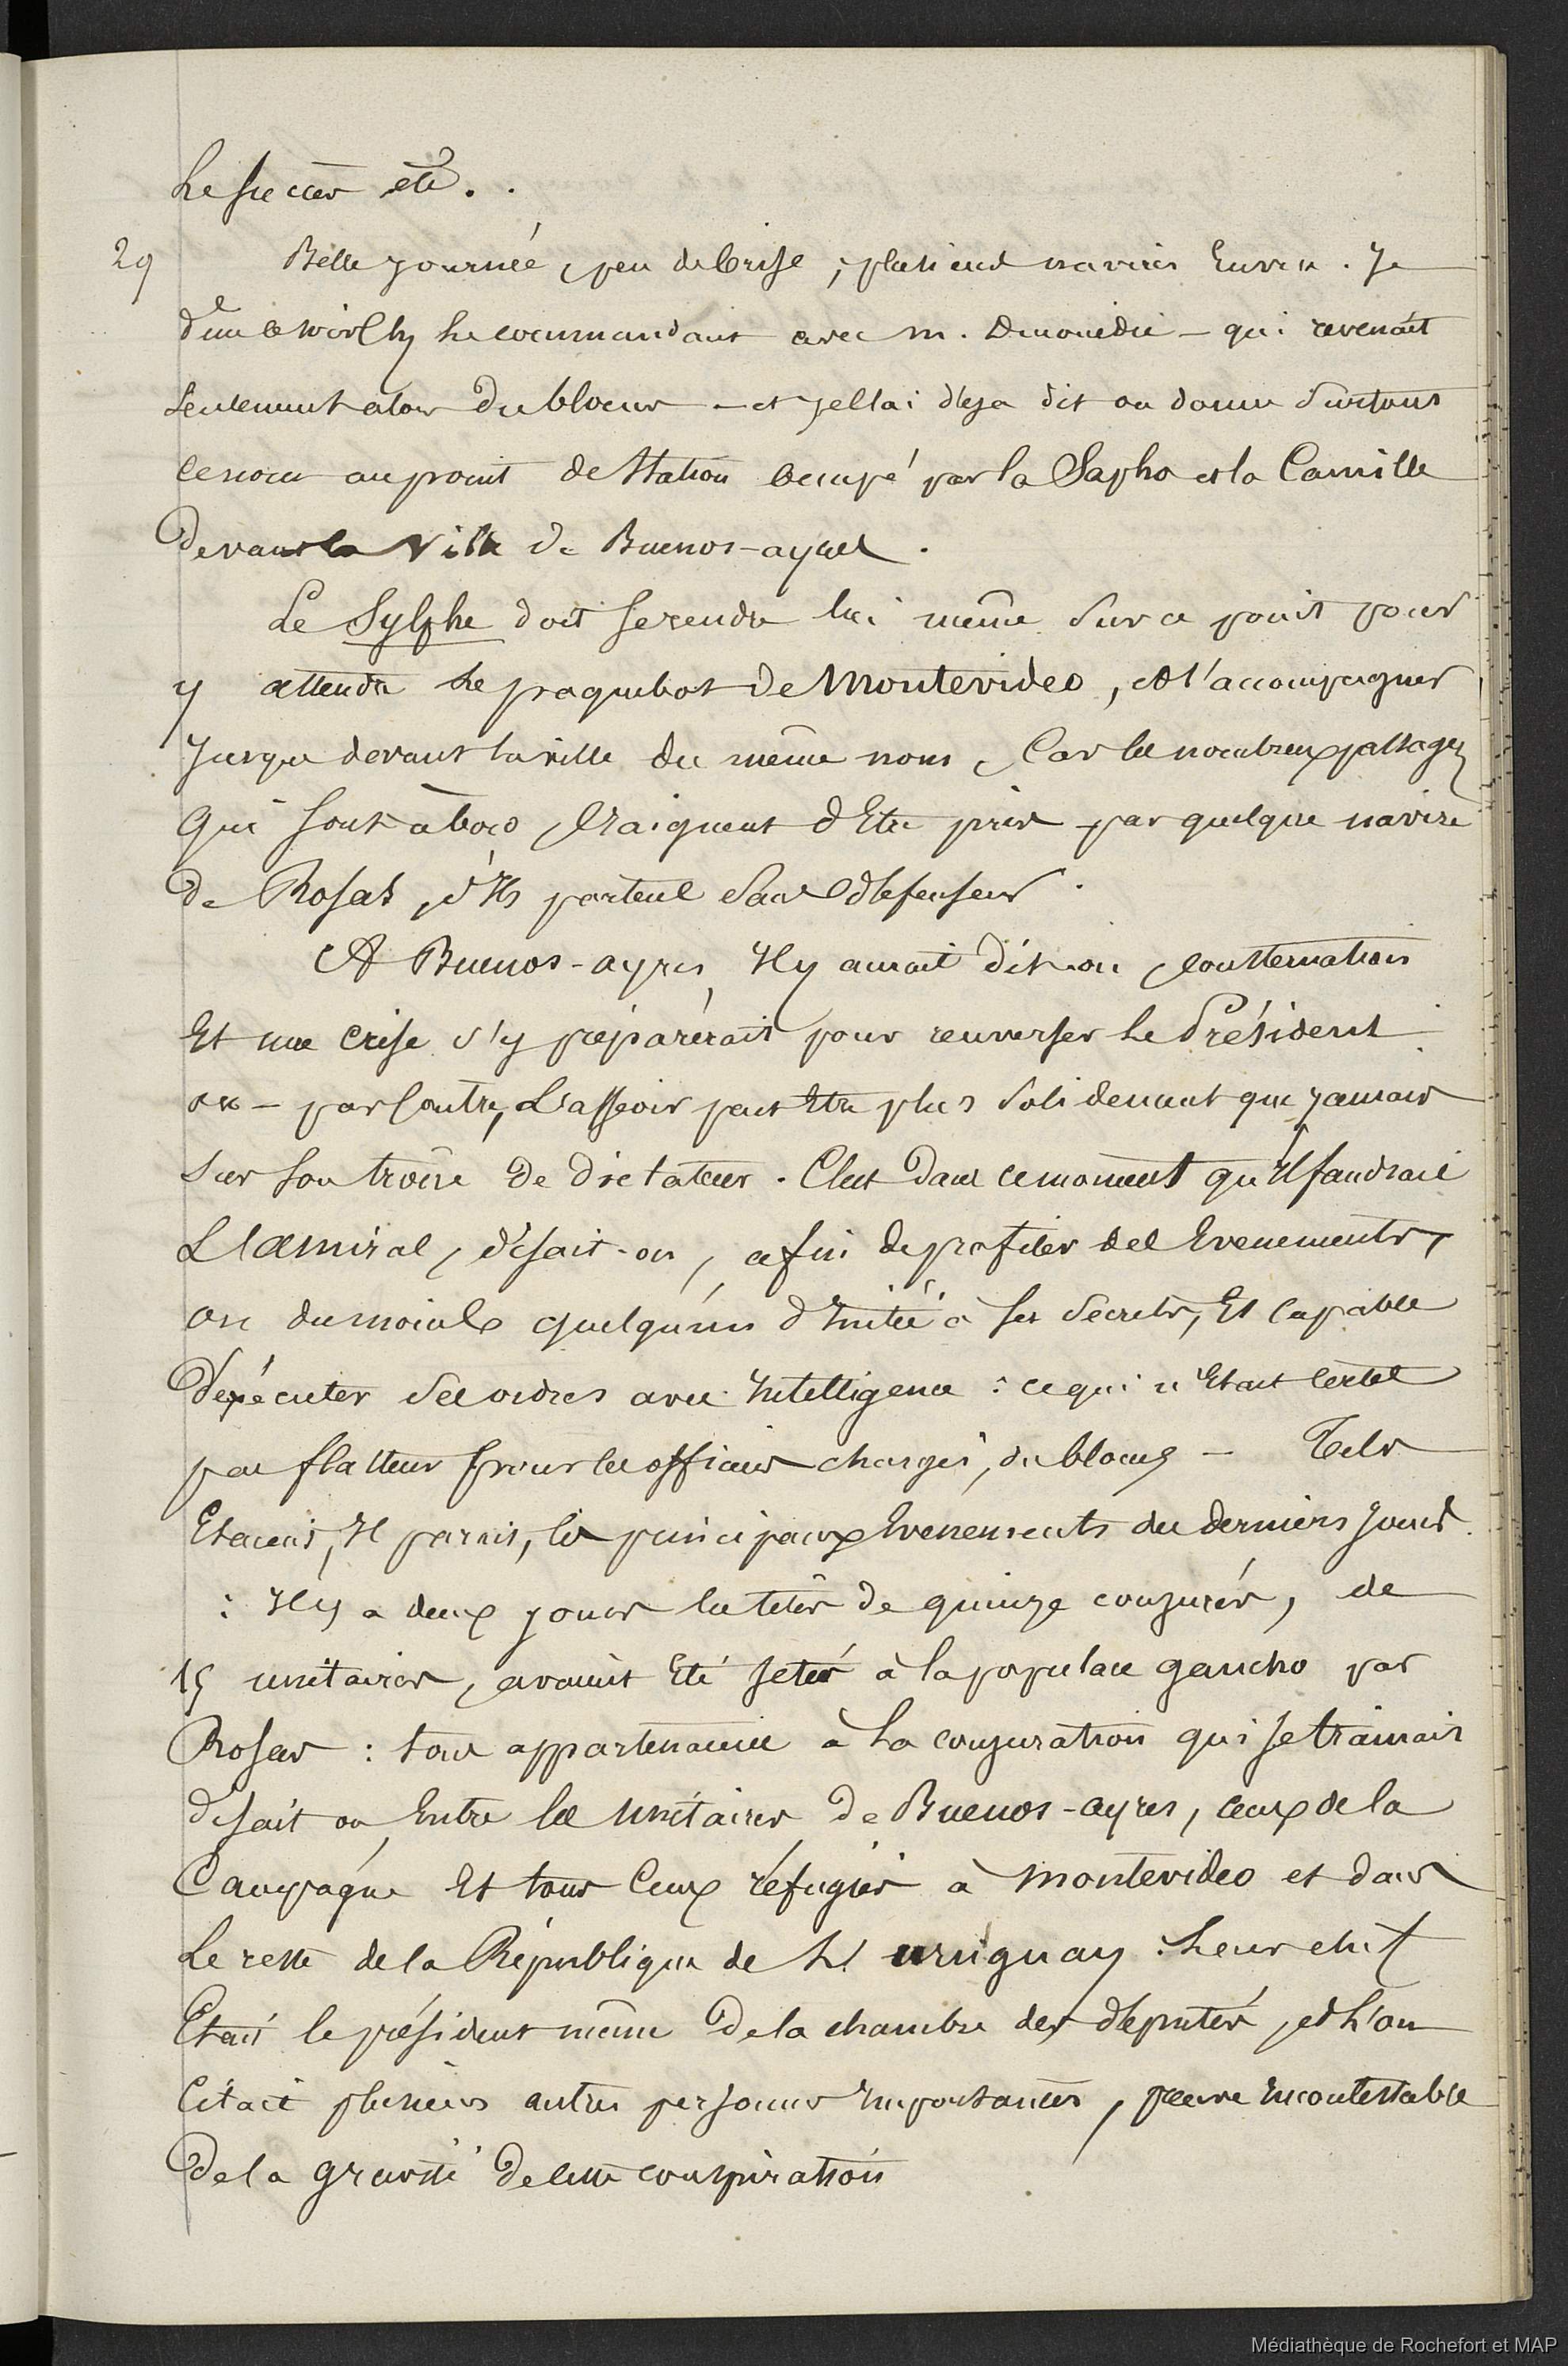 Le succès etc. .
29 Belle journée, peu de brise, plusieurs navires en vue. Je
dine chez le commandant avec m. – qui revenait
seulement alors du blocus – et je l'ai déja dit on donne surtout
ce nom au point de station occupé par la Sapho et la Camille
devant la ville de Buenos-ayres.
Le Sylphe doit se rendre lui même sur ce point pour
y attendre le paquebot de Montevideo, et l'accompagner
jusque devant la ville du même nom, Car les nombreux passagers
qui sont à bord craignent d'Etre pris par quelque navire
de Rosas, s'Ils partent sans défenseur.
A Buenos-ayres, Il y aurait dit-on, consternation
Et une crise s'y préparerait pour renverser le Président
ou – par contre, L'asseoir peut Etre plus solidement que jamais
sur son trône de dictateur. C'est dans ce moment qu'Il faudrait
L'amiral, disait-on, afin de profiter des Evenements,
ou du moins quelqu'un d'Initié à ses secrets, Et capable
d'exécuter ses ordres avec Intelligence : ce qui n'Etait certes
pas flatteur pour les officiers chargés, du blocus – Tels
Etaient, Il parait, les principaux Evenements des derniers jours
: Il y a deux jours les têtes de quinze conjurés, de
15 unitaires, avaient Eté jetés à la populace gaucho par
Rosas : tous appartenaient à La conjuration qui se tramait
disait on Entre les unitaires de Buenos-ayres, ceux de la
Campagne Et tous Ceux réfugiés à Montevideo et dans
Le reste de la République de L' uruguay : Leur chef
Etait le président même de la chambre des députés, et L'on
Citait plusieurs autres personnes Importantes, preuve Incontestable
De la gravité de cette conspiration
Médiathèque de Rochefort et MAP